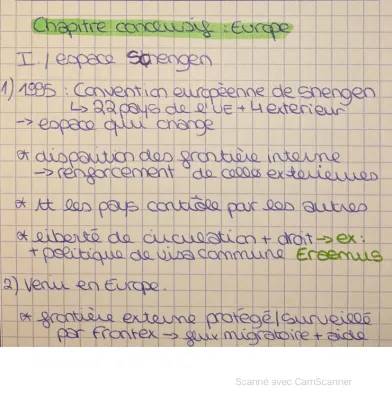 Chapitre conclusif : Europe
I / espace Schengen
1) 1995 : Convention européenne de shengen
↳ 22 pays de l'UE + 4 exterieur
→ espace qui change
* disparition des frontière interne
→ renforcement de celles exterieures
* tt les pays contrôle par les autres
* liberté de circulation + droit → ex :
+ politique de visa commune Erasmus
2) Venu en Europe.
* frontière externe protégé/surveillé
par Frontex → flux migratoire + aide
Scanné avec CamScanner